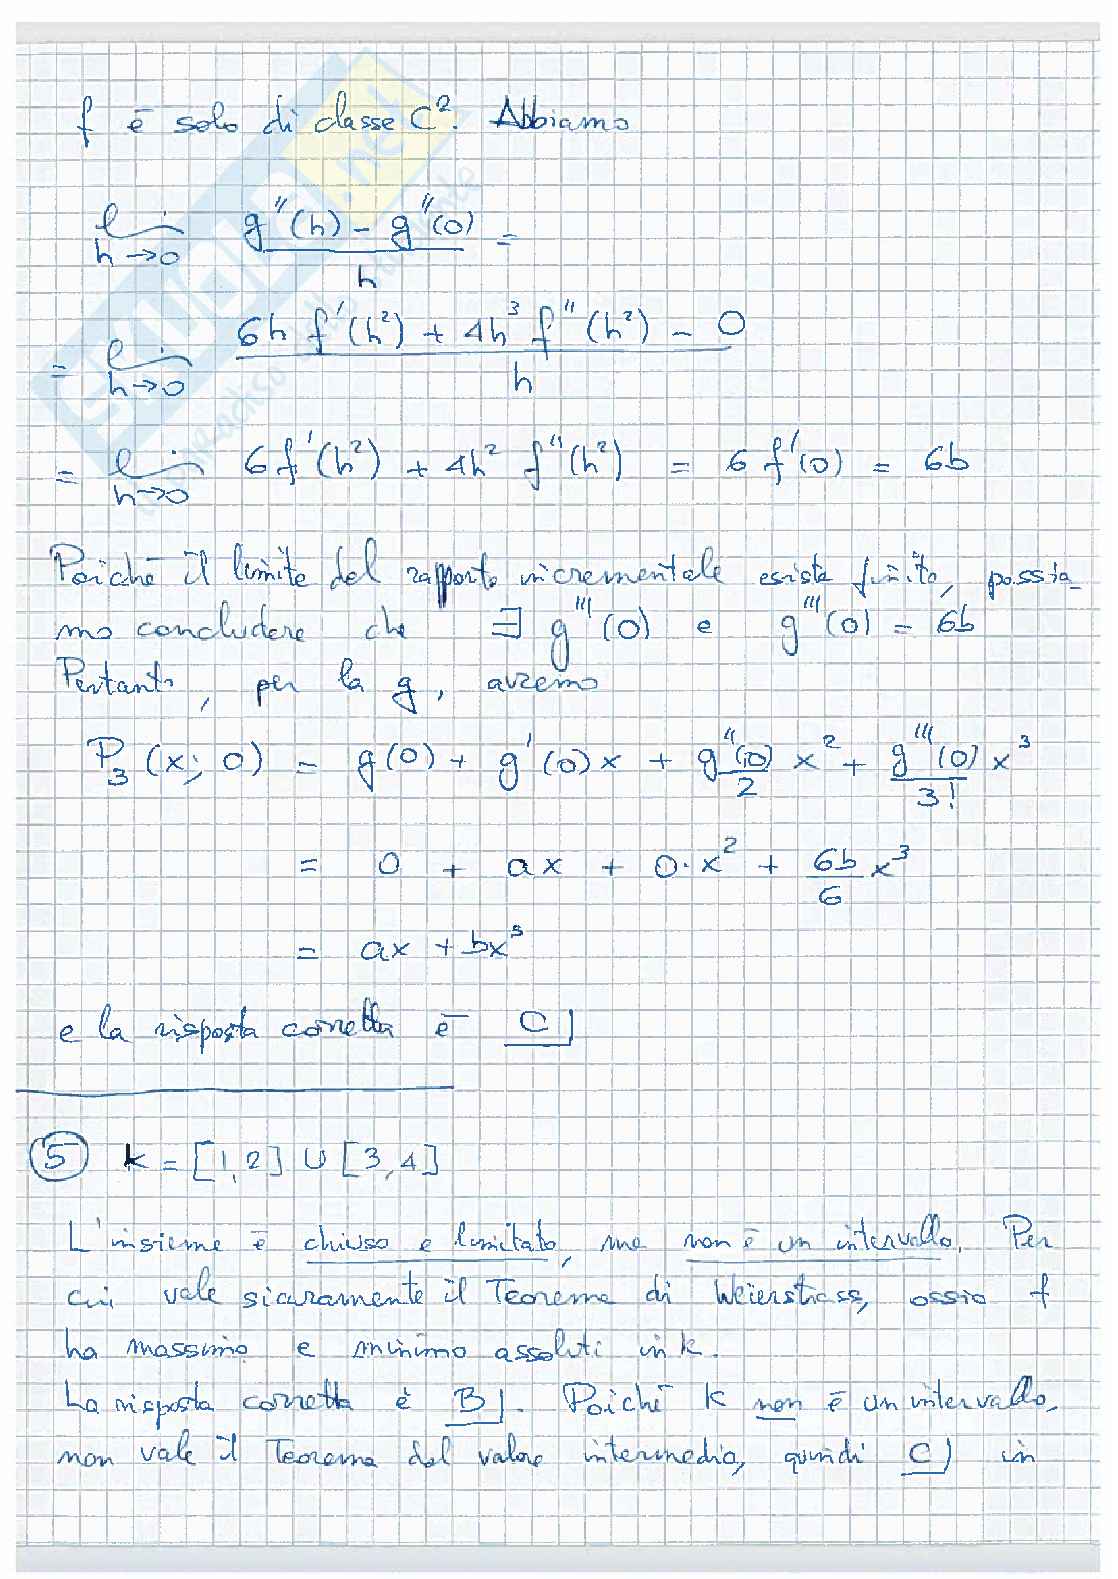 f è solo di classe C². Abbiamo
lim h→0 (g''(h) - g''(0)) / h =
= lim h→0 (6h f'(h²) + 4h³ f''(h²) - 0) / h
= lim h→0 6f'(h²) + 4h² f''(h²) = 6 f'(0) = 6b
Poiché il limite del rapporto incrementale esiste finito, possia-
mo concludere che ∃ g'''(0) e g'''(0) = 6b
Pertanto, per la g, avremo
P₃(x; 0) = g(0) + g'(0)x + g''(0)/2 x² + g'''(0)/3! x³
= 0 + ax + 0·x² + 6b/6 x³
= ax + bx³
e la risposta corretta è C)
5 K = [1,2] ∪ [3,4]
L'insieme è chiuso e limitato, ma non è un intervallo. Per
cui vale sicuramente il Teorema di Weierstrass, ossia f
ha massimo e minimo assoluti in K.
La risposta corretta è B). Poiché K non è un intervallo,
non vale il Teorema del valore intermedio, quindi C) in